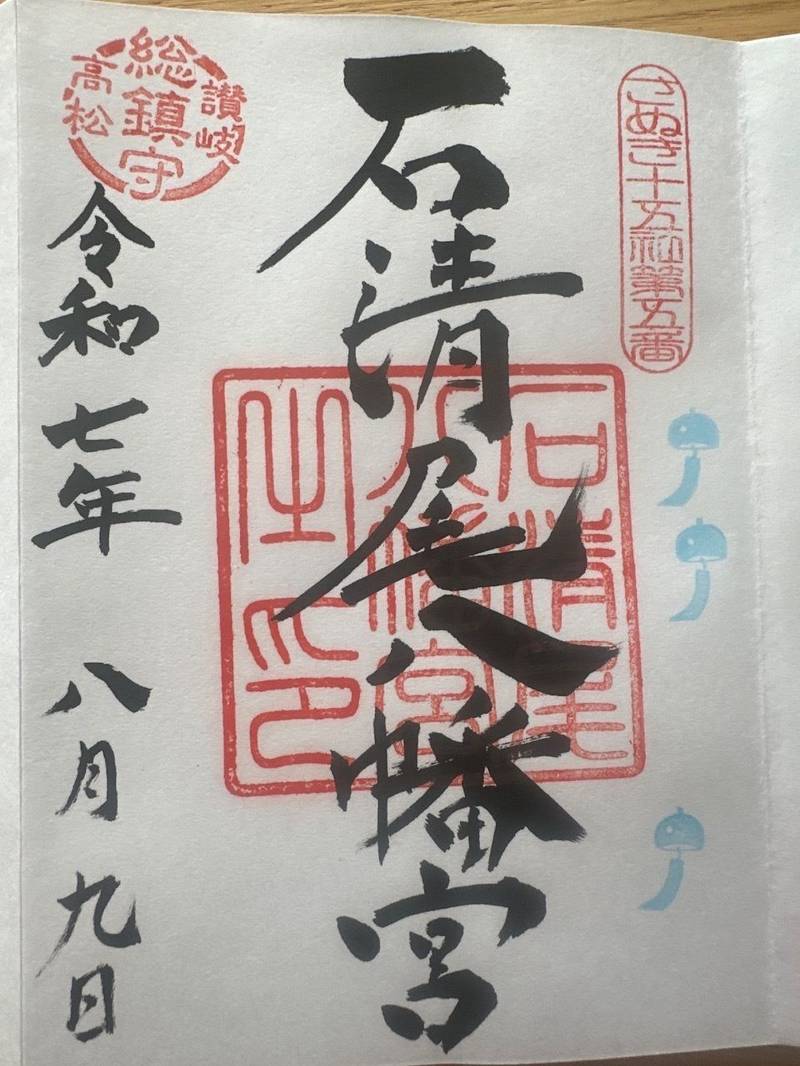 さぬき十五社第五番
石清尾八幡宮
石清尾
八幡宮
之印
讃岐
総鎮守
高松
令和七年八月九日